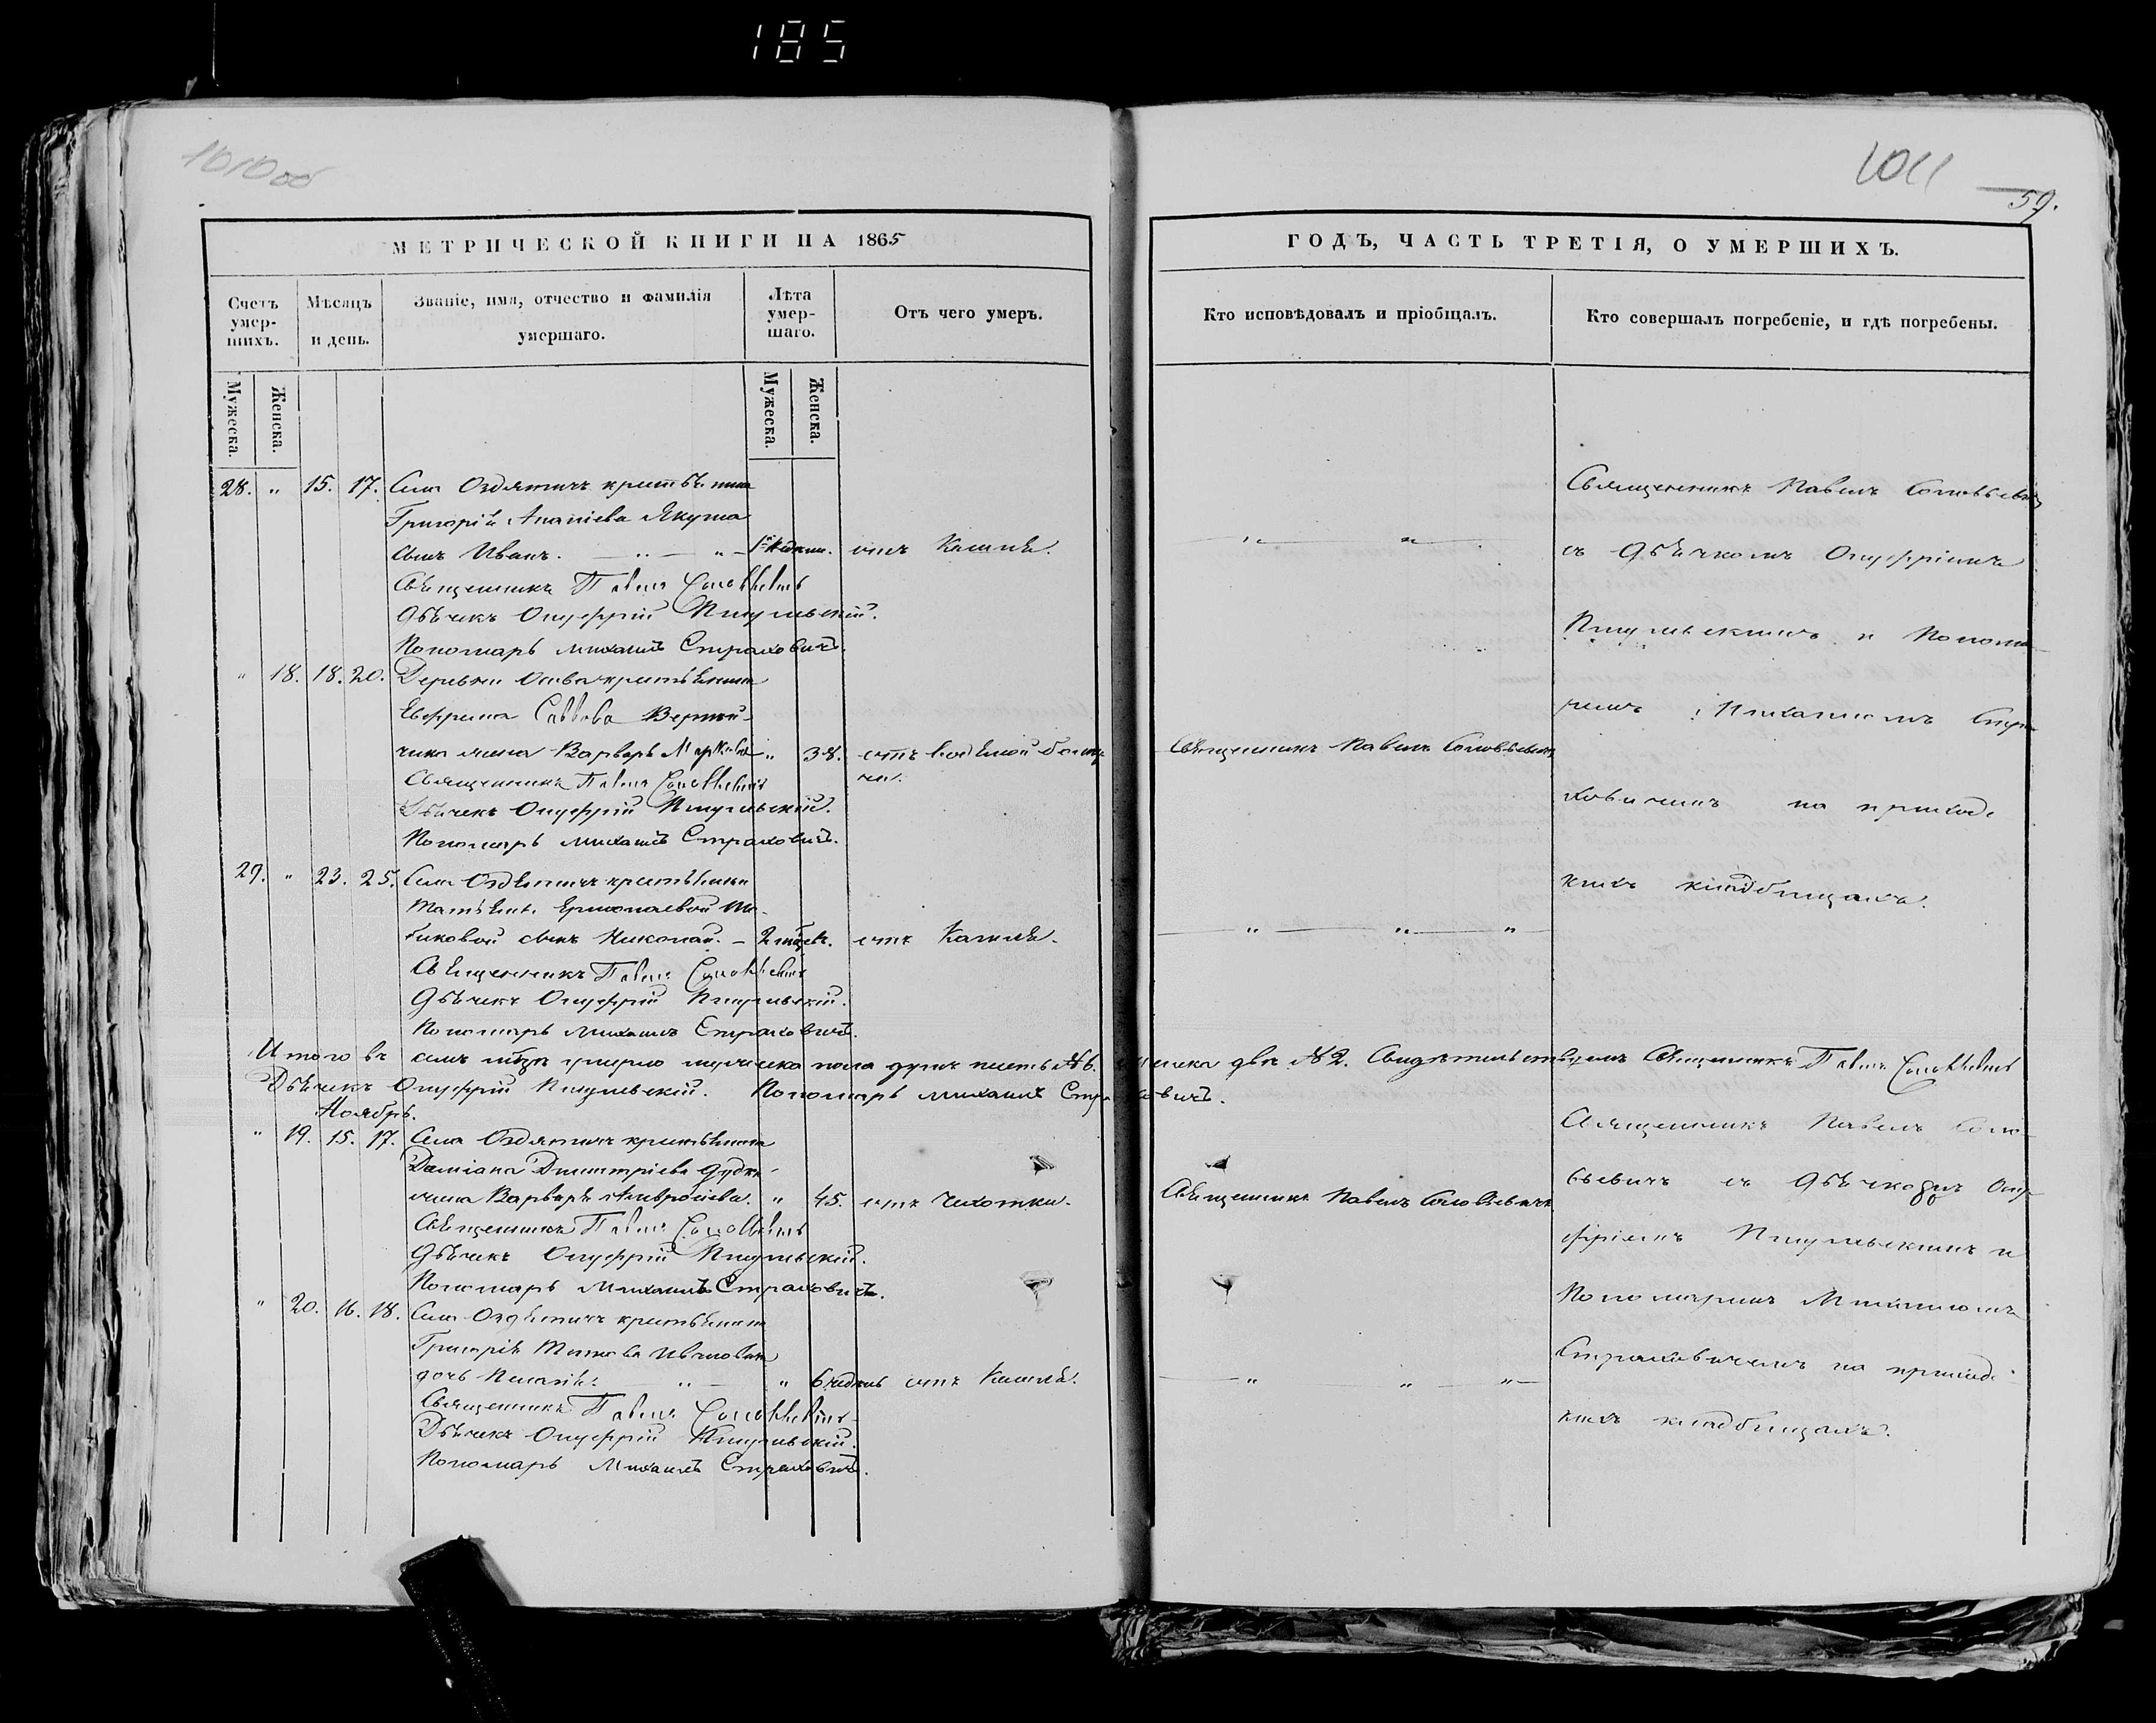 185
1010 об
1011
59.
МЕТРИЧЕСКОЙ КНИГИ НА 1865
ГОДЪ, ЧАСТЬ ТРЕТІЯ, О УМЕРШИХЪ.
Счетъ умер- шихъ.
Мѣсяцъ и день.
Званіе, имя, отчество и фамилія умершаго.
Лѣта умер- шаго.
Отъ чего умеръ.
Кто исповѣдовалъ и пріобщалъ.
Кто совершалъ погребеніе, и гдѣ погребены.
Мужеска.
Женска.
Мужеска.
Женска.
28. " 15. 17. Села Оздятичъ крестьянина
Григорія Ананіева Якуша
сынъ Иванъ. отъ Кашля.
Священникъ Павелъ Соловьевичъ
Дьячекъ Онуфрій Пигулевскій.
Пономарь Михаилъ Страховичъ.
" 18. 18. 20. Деревни крестьянина
Саввова
жена Варвара Маркова " 38. отъ водяной болѣз-
ни.
Священникъ Павелъ Соловьевичъ
Священникъ Павелъ Соловьевичъ
Дьячекъ Онуфрій Пигулевскій.
Пономарь Михаилъ Страховичъ.
Священникъ Павелъ Соловьевичъ
съ Дьячкомъ Онуфріемъ
Пигулевскимъ и Понома-
ремъ Михаиломъ Стра-
ховичемъ на приход-
скихъ кладбищахъ.
29. " 23. 25. Села Оздятичъ крестьянки
Татьяны Ермолаевой
сынъ Николай. 2 отъ Кашля.
Священникъ Павелъ Соловьевичъ
Дьячекъ Онуфрій Пигулевскій.
Пономарь Михаилъ Страховичъ.
Итого въ семъ мѣсяцѣ умерло мужеска пола душъ шесть № 6. женска двѣ № 2. Свидѣтельствуемъ Священникъ Павелъ Соловьевичъ
Дьячекъ Онуфрій Пигулевскій. Пономарь Михаилъ Страховичъ.
Ноябрь.
" 19. 15. 17. Села Оздятичъ крестьянина
Даміана Димитріева Дудки
жена Варвара Амвросіева. " 45. отъ Чахотки.
Священникъ Павелъ Соловьевичъ
Священникъ Павелъ Соловьевичъ
Дьячекъ Онуфрій Пигулевскій.
Пономарь Михаилъ Страховичъ.
" 20. 16. 18. Села Оздятичъ крестьянина
Григорія
дочь Пелагія. " 6 недѣль отъ Кашля.
Священникъ Павелъ Соловьевичъ
Дьячекъ Онуфрій Пигулевскій.
Пономарь Михаилъ Страховичъ.
Священникъ Павелъ Соло-
вьевичъ съ Дьячкомъ Ону-
фріемъ Пигулевскимъ и
Пономаремъ Михаиломъ
Страховичемъ на приход-
скихъ кладбищахъ.